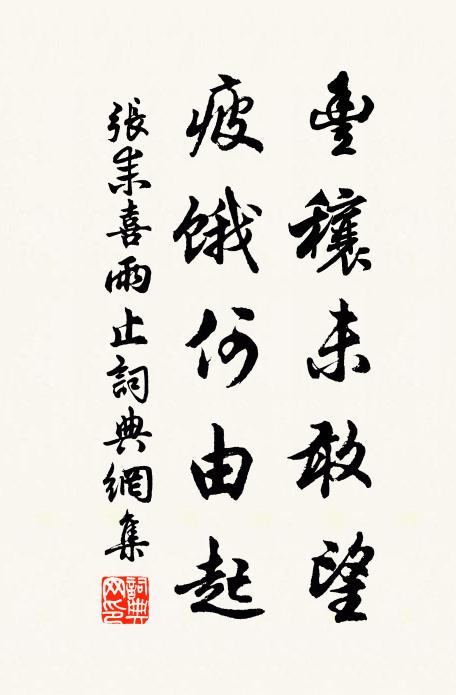 豊穰未敢望
疲餓何由起
張耒喜雨止詞典網集
詞典網印